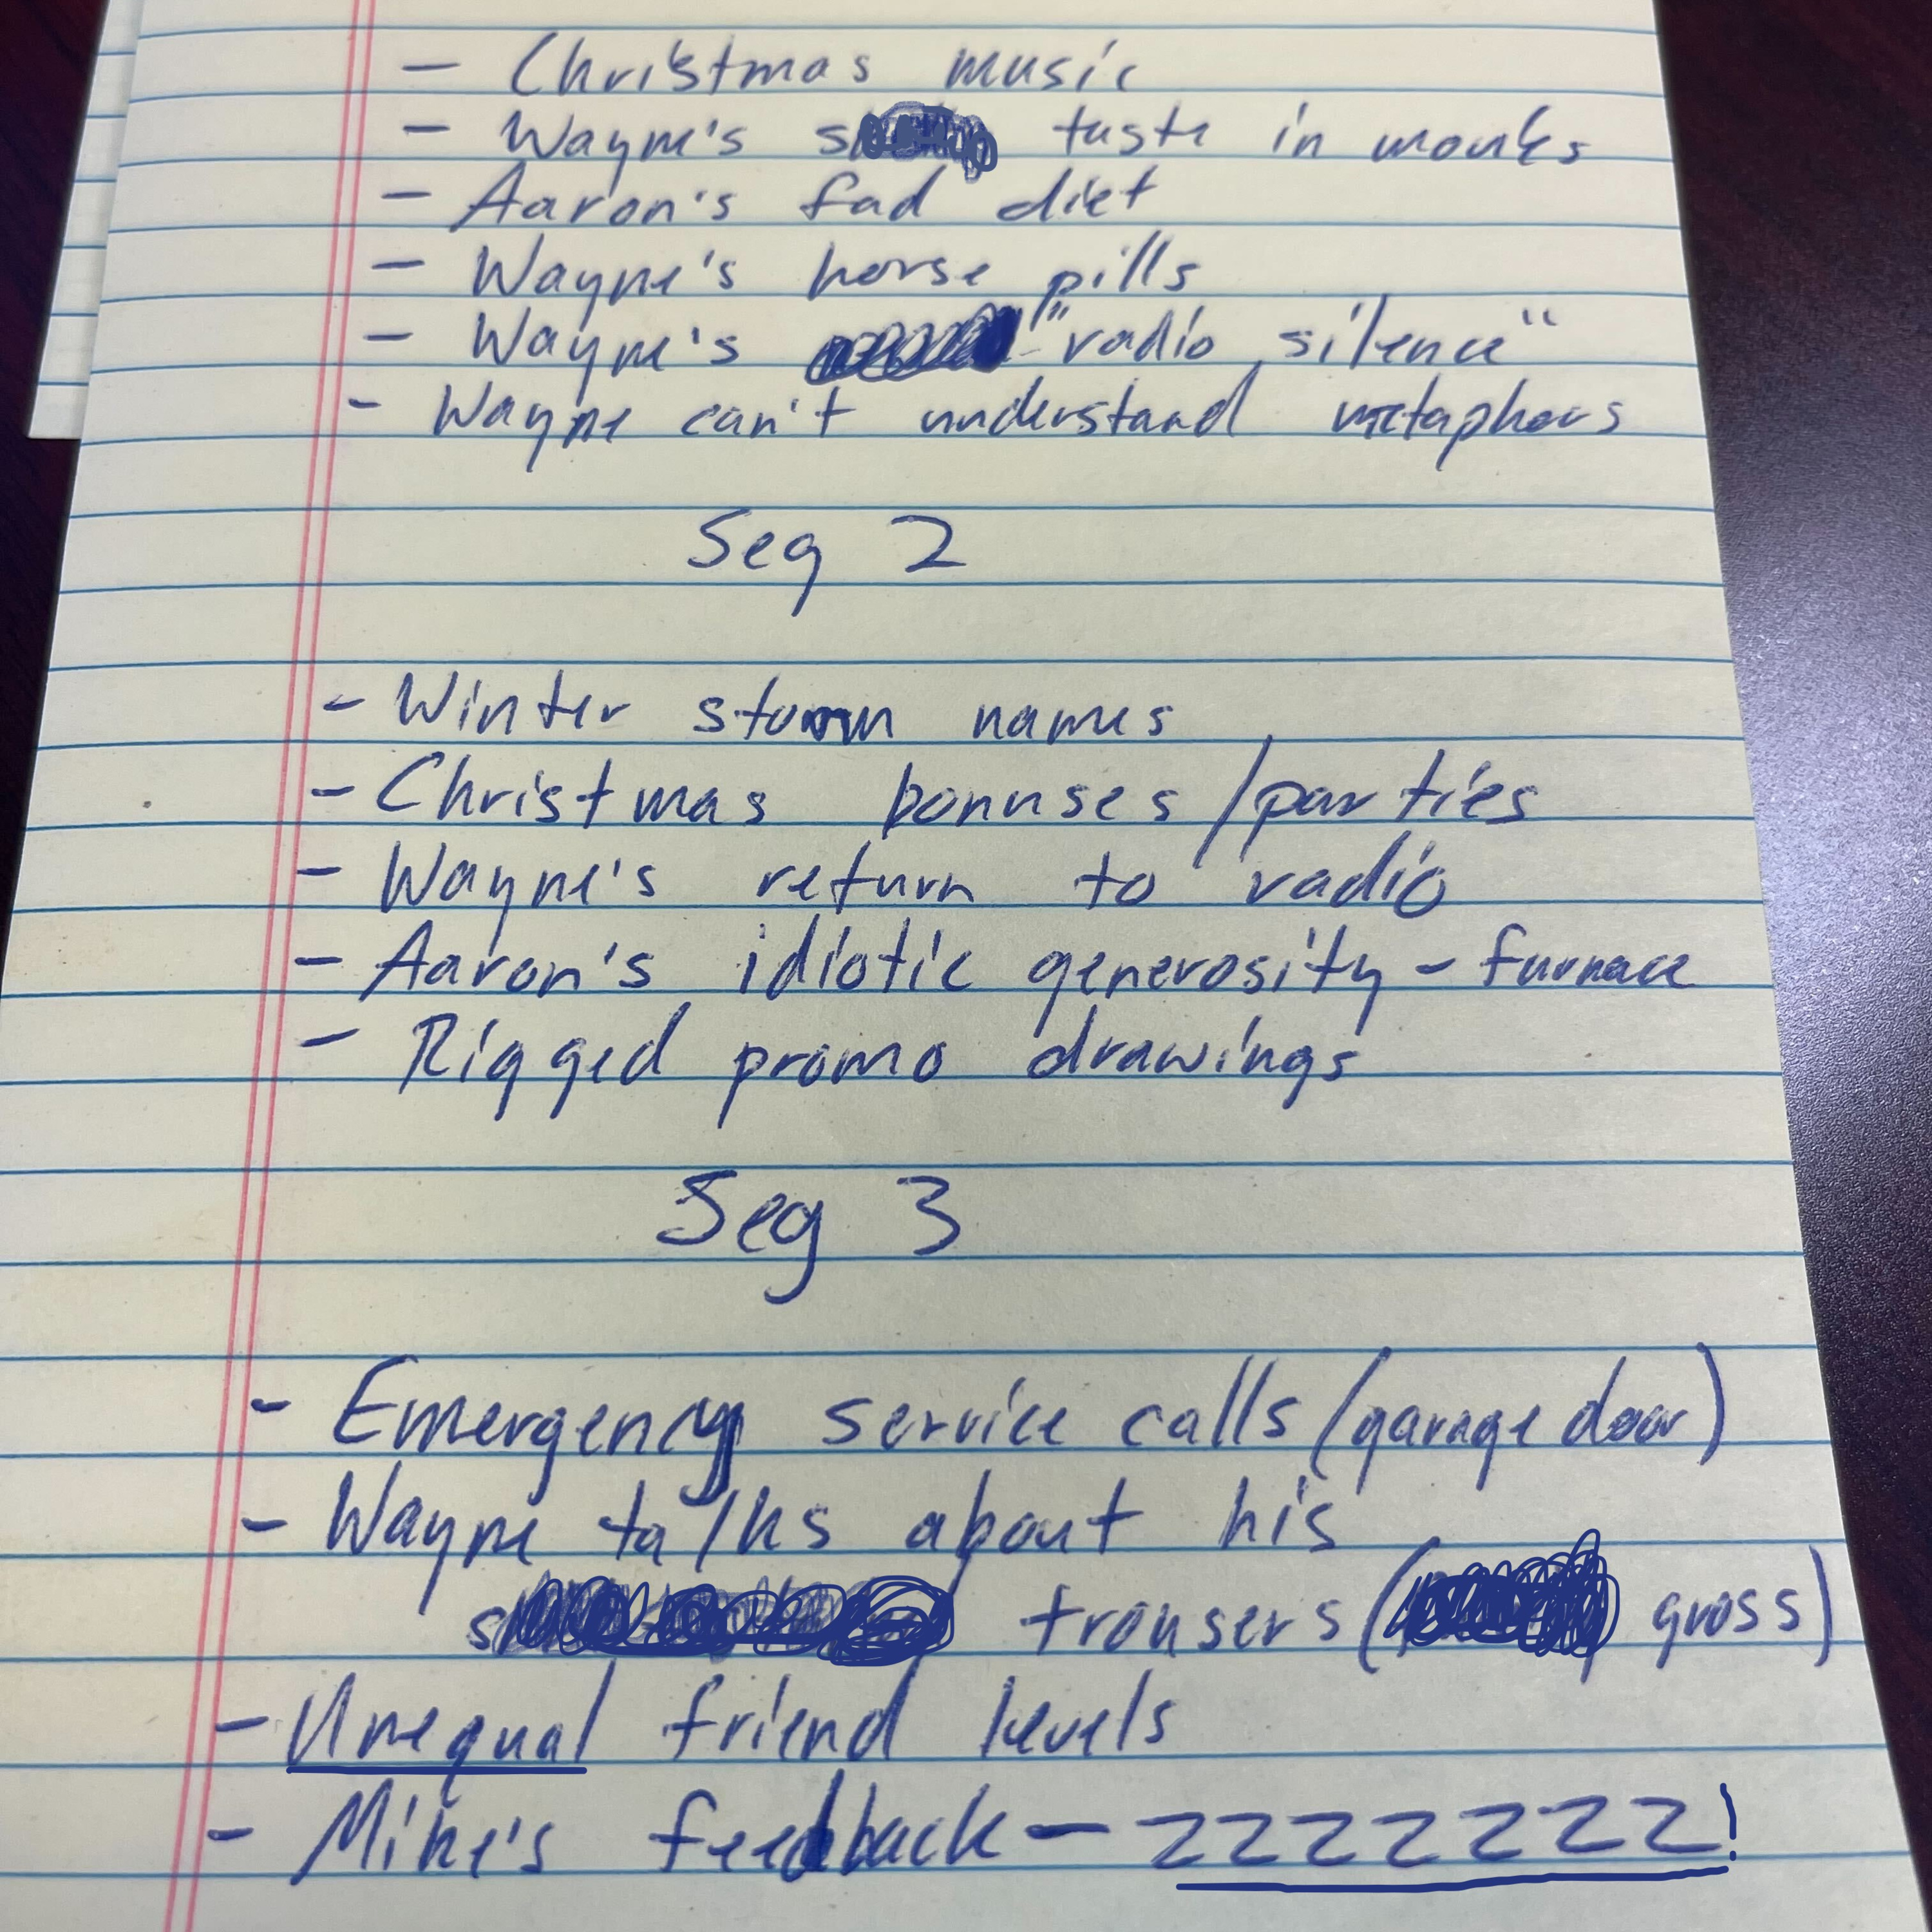 - Christmas music
- Wayne's taste in monks
- Aaron's fad diet
- Wayne's horse pills
- Wayne's "radio silence"
- Wayne can't understand metaphors
Seg 2
- Winter storm names
- Christmas bonuses/parties
- Wayne's return to radio
- Aaron's idiotic generosity - furnace
- Rigged promo drawings
Seg 3
- Emergency service calls (garage door)
- Wayne talks about his
trousers ( gross)
- Unequal friend levels
- Mike's feedback - ZZZZZZZ!